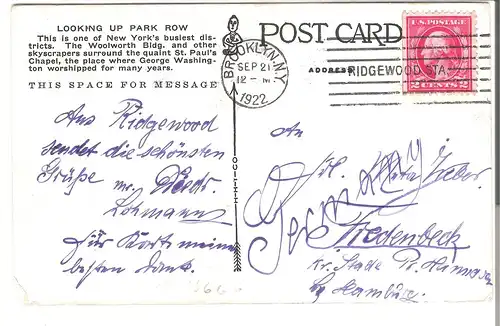 LOOKING UP PARK ROW
This is one of New York's busiest dis-
tricts. The Woolworth Bldg. and other
skyscrapers surround the quaint St. Paul's
Chapel, the place where George Washing-
ton worshipped for many years.
THIS SPACE FOR MESSAGE
Aus Ridgewood
sendet die schönsten
Grüße
Lohmann
Für Karte meine
besten Dank.
POST CARD
ADDRESS
BROOKLYN, N.Y.
SEP 21
12 - M
1922
RIDGEWOOD STA.
U.S. POSTAGE
2 CENTS 2
An
Frl.
Germany
Fredenbeck
Kr. Stade Pr. Hannover
Hamburg